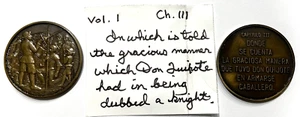 Vol. I Ch. III
In which is told
the gracious manner
which Don Quixote
had in being
dubbed a knight.
CAPITULO III
DONDE
SE CUENTA
LA GRACIOSA MANERA
QUE TUVO DON QUIJOTE
EN ARMARSE
CABALLERO